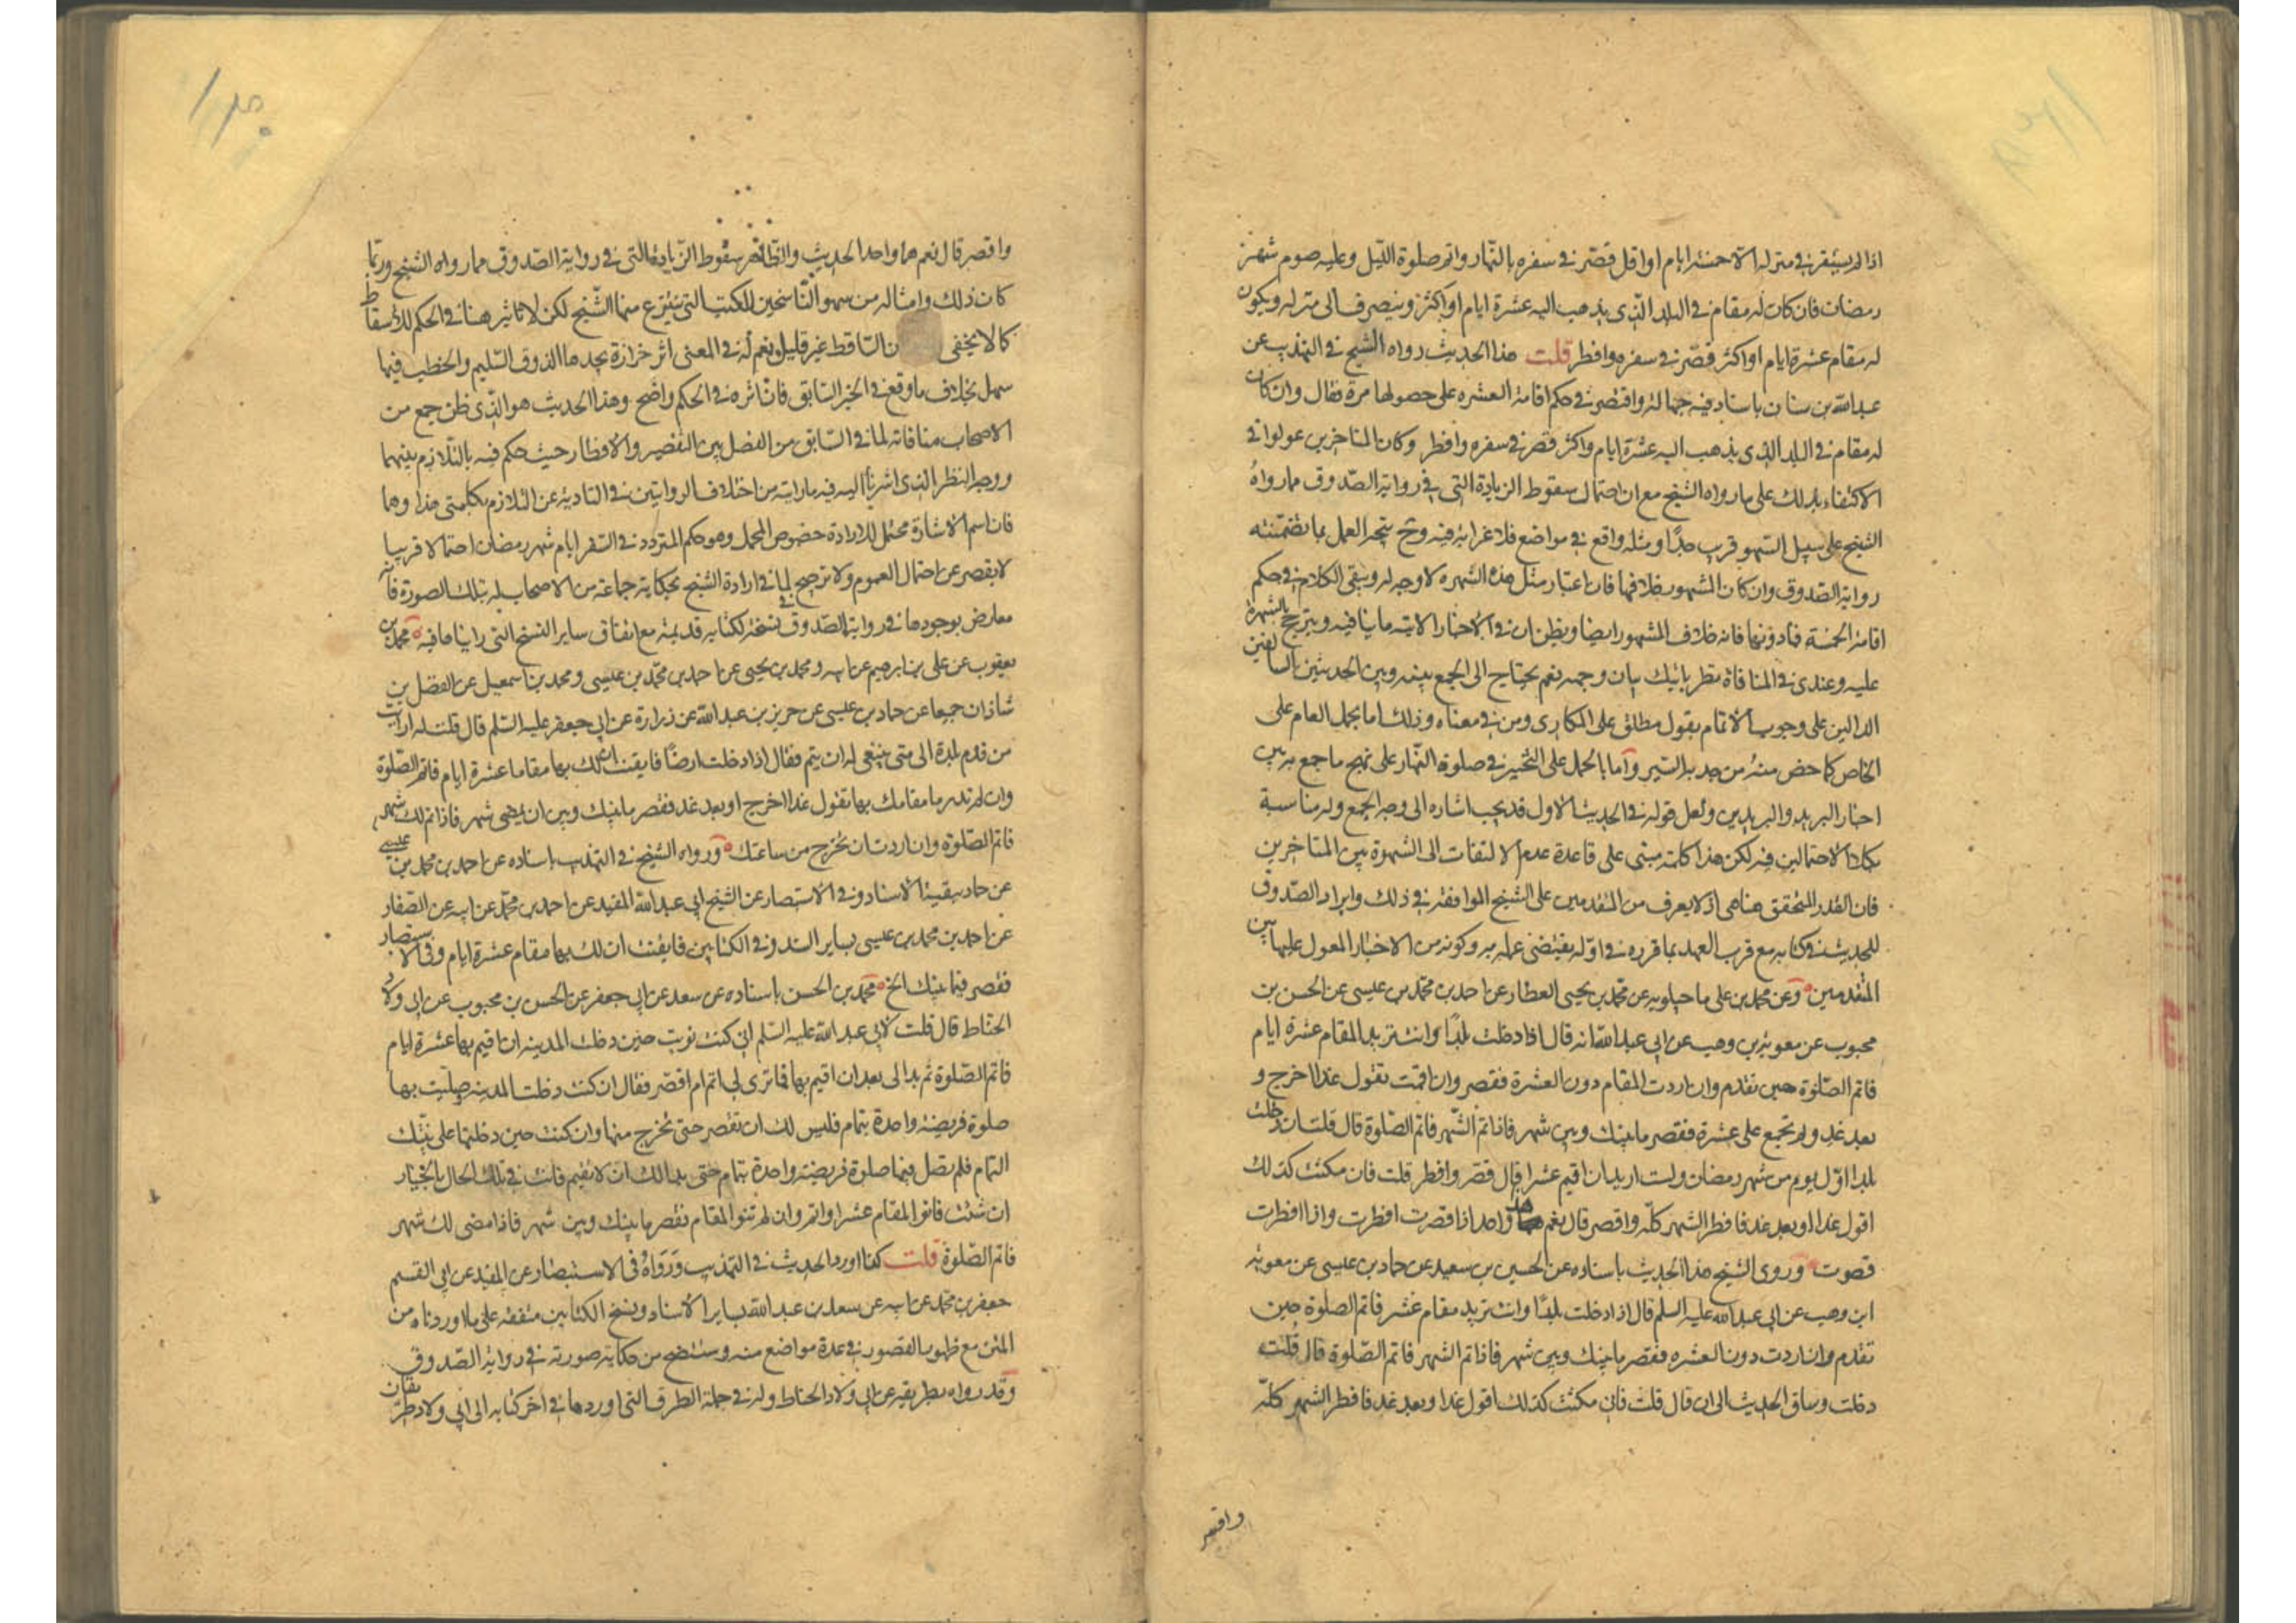 اذا لم يستقر في منزله الا خمسة ايام او اقل قصّر في سفره بالنّهار واتم صلوة اللّيل وعليه صوم شهر
رمضان فان كان له مقام في البلد الذي يذهب اليه عشرة ايام او اكثر وينصرف الى منزله ويكون
له مقام عشرة ايام او اكثر قصّر في سفره وافطر قلت هذا الحديث رواه الشيخ في التهذيب عن
عبدالله بن سنان باسناد فيه جهالة واقتصر في حكم اقامة العشره على حصولها مرة فقال وان كان
له مقام في البلد الذي يذهب اليه عشرة ايام واكثر قصر في سفره وافطر وكان المتاخرين عولوا في
الاكتفاء بذلك على ما رواه الشيخ مع ان احتمال سقوط الزيادة التى في رواية الصّدوق مما رواهُ
الشيخ على سبيل السّهو قريب جدًا ومثله واقع في مواضع فلا غرابة فيه وح يتجه العمل بما تضمّنته
رواية الصّدوق وان كان المشهور خلافها فان اعتبار مثل هذه الشهره لا وجه له ويبقى الكلام في حكم
اقامة الخمسة فما دونها فانه خلاف المشهور ايضا ويظن ان في الاخبار الاتية ما ينافيه ويترجح بالشهرة
عليه وعندي في المنافاة نظر ياتيك بيان وجهه نعم يحتاج الى الجمع بينه وبين الحديثين السالفين
الدالين على وجوب الاتمام بقول مطلق على المكاري ومن في معناه وذلك اما بحمل العام على
الخاص كما خص منه من جد به السّير وآما بالحمل على التخيير في صلوة النّهار على نهج ما جمع به بين
اخبار البريد والبريدين ولعل قوله في الحديث الاول قد يجب اشاره الى وجه الجمع وله مناسبة
بكلا الاحتمالين فيه لكن هذا كلّه مبنى على قاعدة عدم الالتفات الى الشهرة بين المتاخرين
فان القدر المتحقق هنا هى اذ لا يعرف من المتقدمين على الشيخ الموافقة في ذلك وايراد الصّدوق
للحديث في كتابه مع قرب العهد بما قرره في اوّله يقتضى عمله به وكونه من الاخبار المعول عليها بين
المتقدمين وعن محمد بن على ماجيلويه عن محمّد بن يحيى العطار عن احمد بن محمّد بن عيسى عن الحسن بن
محبوب عن معوية بن وهب عن ابى عبد الله انه قال اذا دخلت بلدًا وانت تريد المقام عشرة ايام
فاتم الصّلوة حين تقدم وان اردت المقام دون العشرة فقصر وان اقمت تقول غدا اخرج و
بعد غد ولم تجمع على عشرة فقصر ما بينك وبين شهر فاذا تم الشّهر فاتم الصّلوة قال قلت ان دخلت
بلدا اوّل يوم من شهر رمضان ولست اريد ان اقيم عشرا قال قصّر وافطر قلت فان مكثت كذلك
اقول غدا او بعد غد فافطر الشهر كلّه واقصر قال نعم هذا واحد اذا قصرت افطرت واذا افطرت
قصرت وروى الشيخ هذا الحديث باسناده عن الحسين بن سعيد عن حماد بن عيسى عن معوية
ابن وهب عن ابى عبدالله عليه السلم قال اذا دخلت بلدًا وانت تريد مقام عشر فاتم الصلوة حين
تقدم وان اردت دون العشره فقصر ما بينك وبين شهر فاذا تم الشهر فاتم الصّلوة قال قلت
دخلت وساق الحديث الى ان قال قلت فان مكثت كذلك اقول غدا وبعد غد فافطر الشهر كلّه
واقصر
واقصر قال نعم هما واحد الحديث والظاهر سقوط الزّيادة التى في رواية الصّدوق مما رواه الشيخ وربّما
كان ذلك وامثاله من سهو النّاسخين للكتب التى ينتزع منها الشّيخ لكن لا تاثير هنا في الحكم للاسقاط
كما لا يخفى ن السّاقط غير قليل نعم له في المعنى اثر حزازة يجدها الذوق السّليم والخطب فيها
سهل بخلاف ما وقع في الخبر السّابق فانّ اثره في الحكم واضح وهذا الحديث هو الّذى ظن جمع من
الاصحاب منافاته لما في السّابق من الفصل بين التقصير والافطار حيث حكم فيه بالتّلازم بينهما
ووجه النظر الذى اشرنا اليه فيه ما رايته من اختلاف الروايتين في التادية عن التلازم بكلمتى هذا وهما
فان اسم الاشارة محتمل لارادة خصوص المحمل وهو حكم المتردد في السفر ايام شهر رمضان احتمالا قريبا
لا يقصر عن احتمال العموم ولا ترجيح لما في ارادة الشيخ بحكاية جماعة من الاصحاب له بتلك الصورة فانّه
معارض بوجودها في رواية الصّدوق في نسخة لكتابه قديمة مع اتفاق ساير النسخ التى رايناها فيه محمد بن
يعقوب عن على بن ابرهيم عن ابيه ومحمد بن يحيى عن احمد بن محمّد بن عيسى ومحمد بن اسمعيل عن الفضل بن
شاذان جميعا عن حماد بن عيسى عن حريز بن عبد الله عن زرارة عن ابى جعفر عليه السّلم قال قلت له ارايت
من قدم بلدة الى متى ينبغى له ان يتم فقال اذا دخلت ارضًا فايقنت ان لك بها مقاما عشرة ايام فاتم الصّلوة
وان لم تدر ما مقامك بها تقول غدا اخرج او بعد غد فقصر ما بينك وبين ان يمضى شهر فاذا تم لك شهر
فاتم الصّلوة وان اردت ان تخرج من ساعتك ورواه الشيخ في التهذيب باسناده عن احمد بن محمد بن عيسى
عن حماد ببقية الاسناد وفي الاستبصار عن الشيخ ابى عبدالله المفيد عن احمد بن محمّد عن ابيه عن الصّفار
عن احمد بن محمد بن عيسى بساير السّند وفي الكتابين فايقنت ان لك بها مقام عشرة ايام وفى الاستبصار
فقصر فيما بينك الخ محمّد بن الحسن باسناده عن سعد عن ابى جعفر عن الحسن بن محبوب عن ابى ولاد
الحنّاط قال قلت لابى عبد الله عليه السّلم انى كنت نويت حين دخلت المدينه ان اقيم بها عشرة ايام
فاتم الصّلوة ثم بدا لى بعد ان اقيم بها فما ترى لى اتم ام اقصّر فقال ان كنت دخلت المدينه صلّيت بها
صلوة فريضة واحدة بتمام فليس لك ان تقصر حتى تخرج منها وان كنت حين دخلتها على نيّتك
التمام فلم تصل فيها صلوة فريضة واحدة بتمام حتى بدا لك ان لا تقيم فانت في تلك الحال بالخيار
ان شئت فانو المقام عشرا واتم وان لم تنو المقام فقصر ما بينك وبين شهر فاذا مضى لك شهر
فاتم الصّلوة قلت كذا اورد الحديث في التهذيب ورواه فى الاستبصار عن المفيد عن ابى القسم
جعفر بن محمّد عن ابيه عن سعد بن عبد الله بساير الاسناد ونسخ الكتابين متفقة على ما اوردناه من
المتن مع ظهور القصور في عدة مواضع منه وستتضح من حكاية صورته في رواية الصّدوق
وقد رواه بطريقه عن ابى ولاد الحناط وله في جملة الطرق التى اوردها في اخر كتابه الى ابى ولاد طريقان